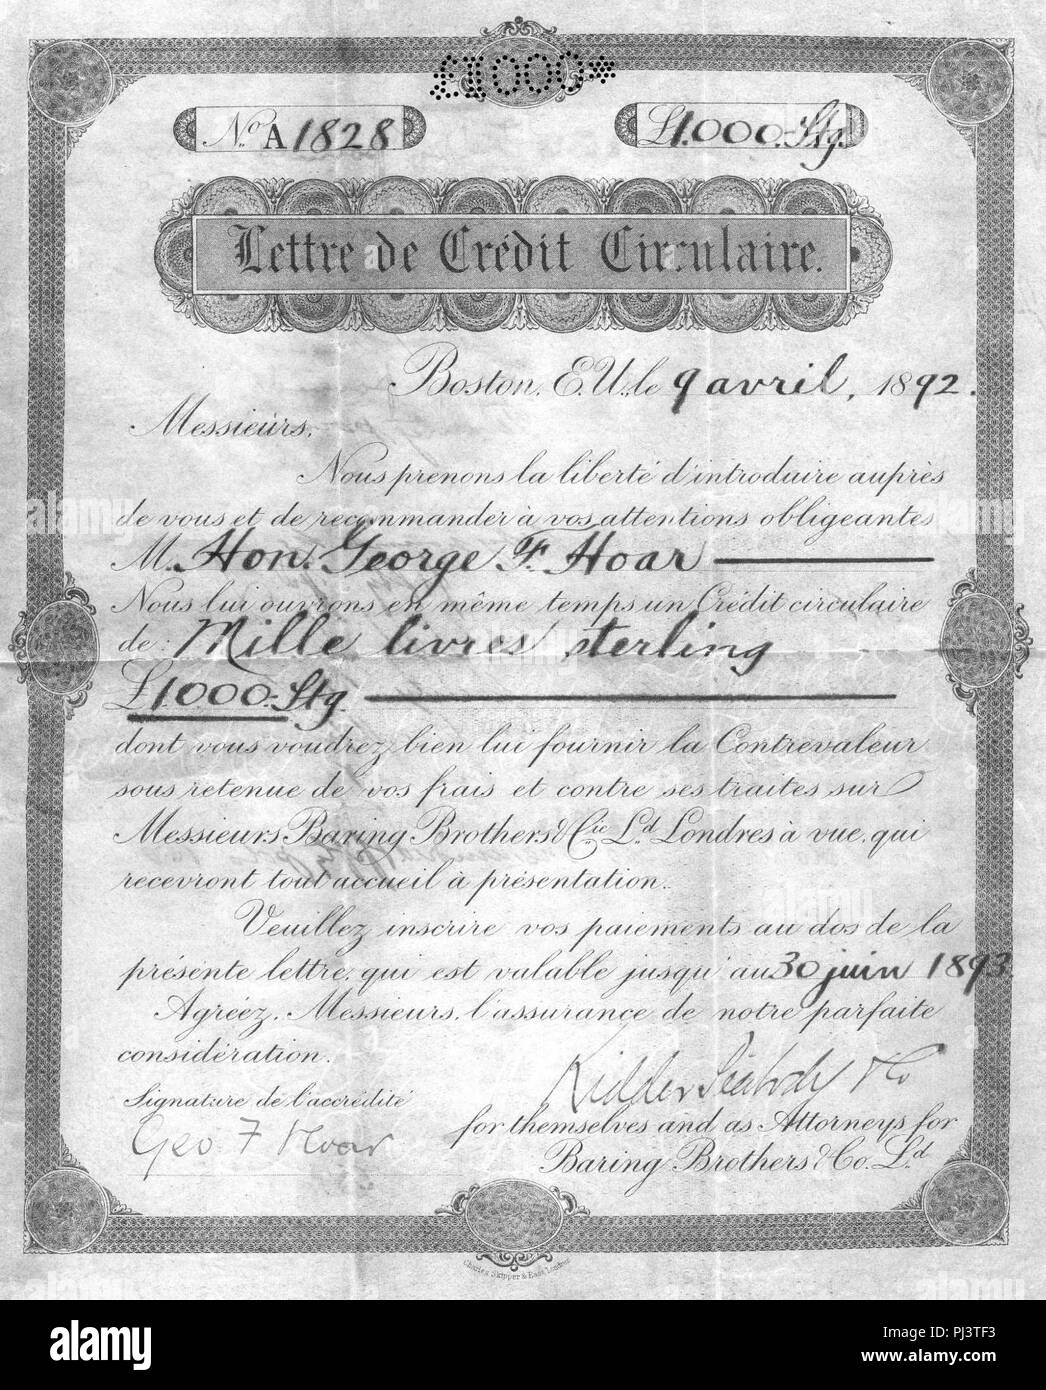 £1000*
No. A 1828
£1.000.Stg.
Lettre de Crédit Circulaire.
Boston, E.U., le 9 avril, 1892.
Messieurs,
Nous prenons la liberté d'introduire auprès
de vous et de recommander à vos attentions obligeantes
M. Hon. George F. Hoar
Nous lui ouvrons en même temps un Crédit circulaire
de: Mille livres sterling
£1000.Stg.
dont vous voudrez bien lui fournir la Contrevaleur
sous retenue de vos frais et contre ses traites sur
Messieurs Baring Brothers & Cie. Ld. Londres à vue, qui
recevront tout accueil à présentation.
Veuillez inscrire vos paiements au dos de la
présente lettre, qui est valable jusqu'au 30 juin 1893
Agréez, Messieurs, l'assurance de notre parfaite
considération.
Kidder Peabody & Co
Signature de l'accrédité
Geo F Hoar
for themselves and as Attorneys for
Baring Brothers & Co. Ld.
Charles Skipper & East, London
alamy
Image ID: PJ3TF3
www.alamy.com